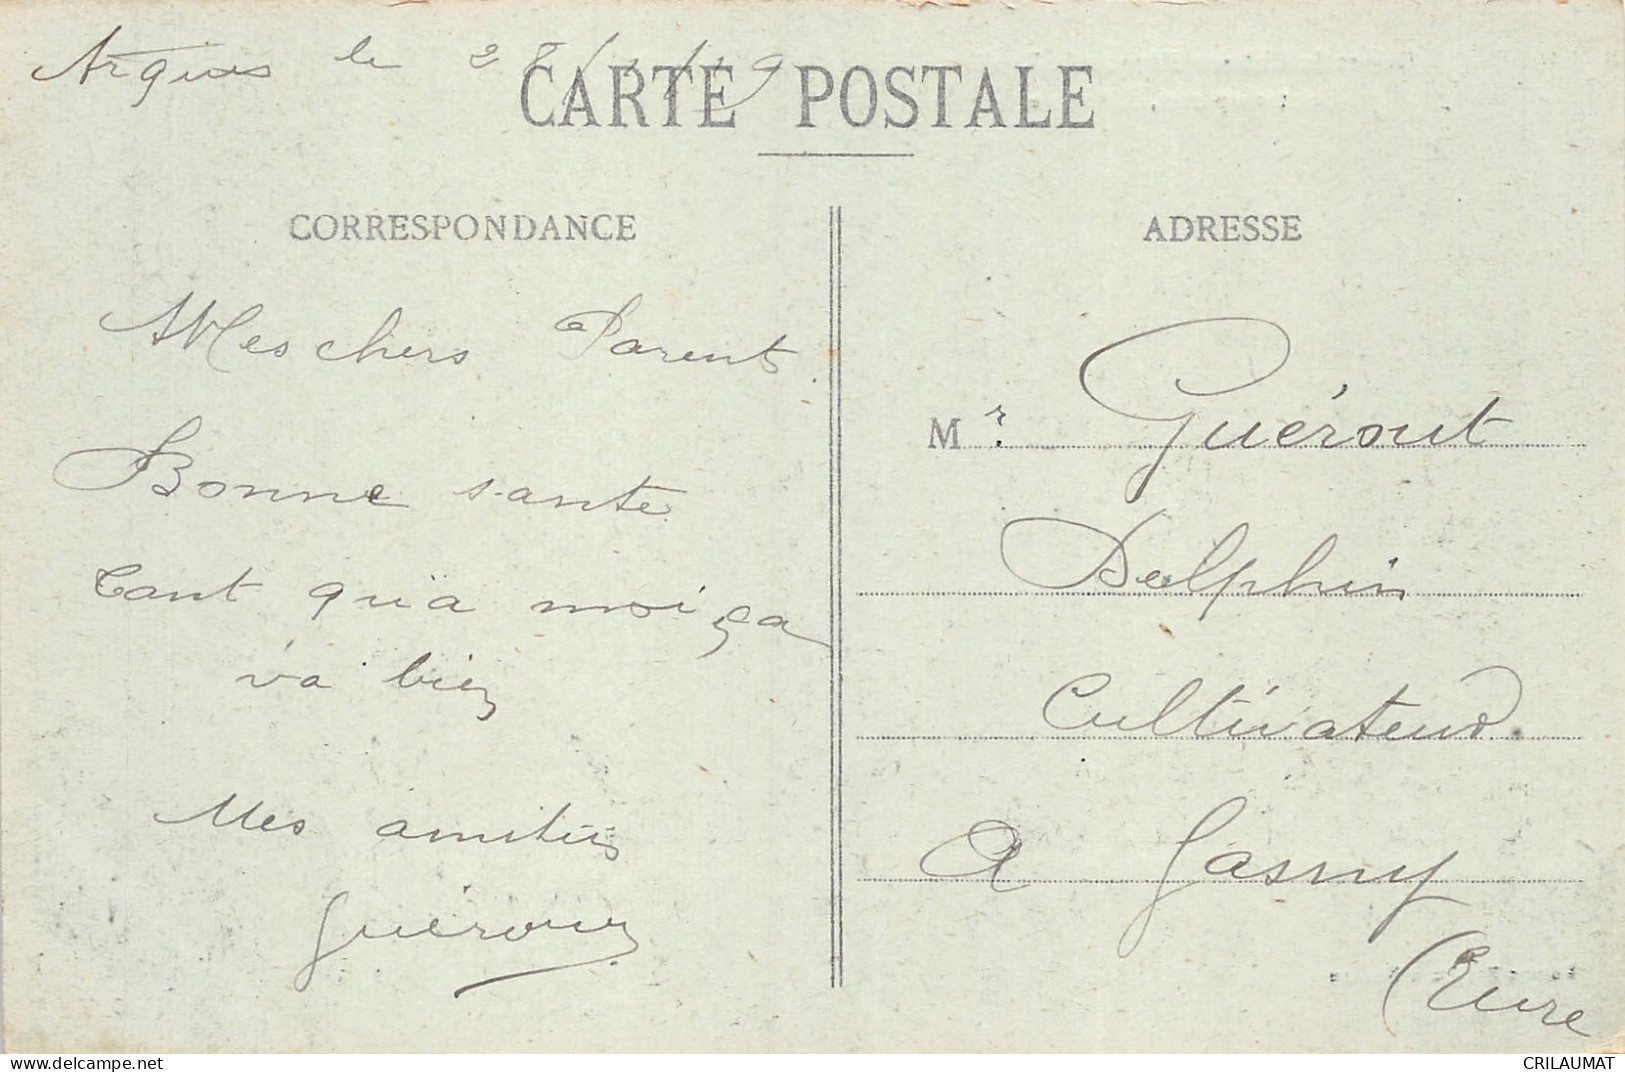 Argives le 28
CARTE POSTALE
CORRESPONDANCE
Mes chers Parents
Bonne sante
tant qu'à moi ça
va bien
Mes amitiés
Guérout
ADRESSE
Mr. Guérout
Delphin
Cultivateur
A Gasny
(Eure
CRILAUMAT